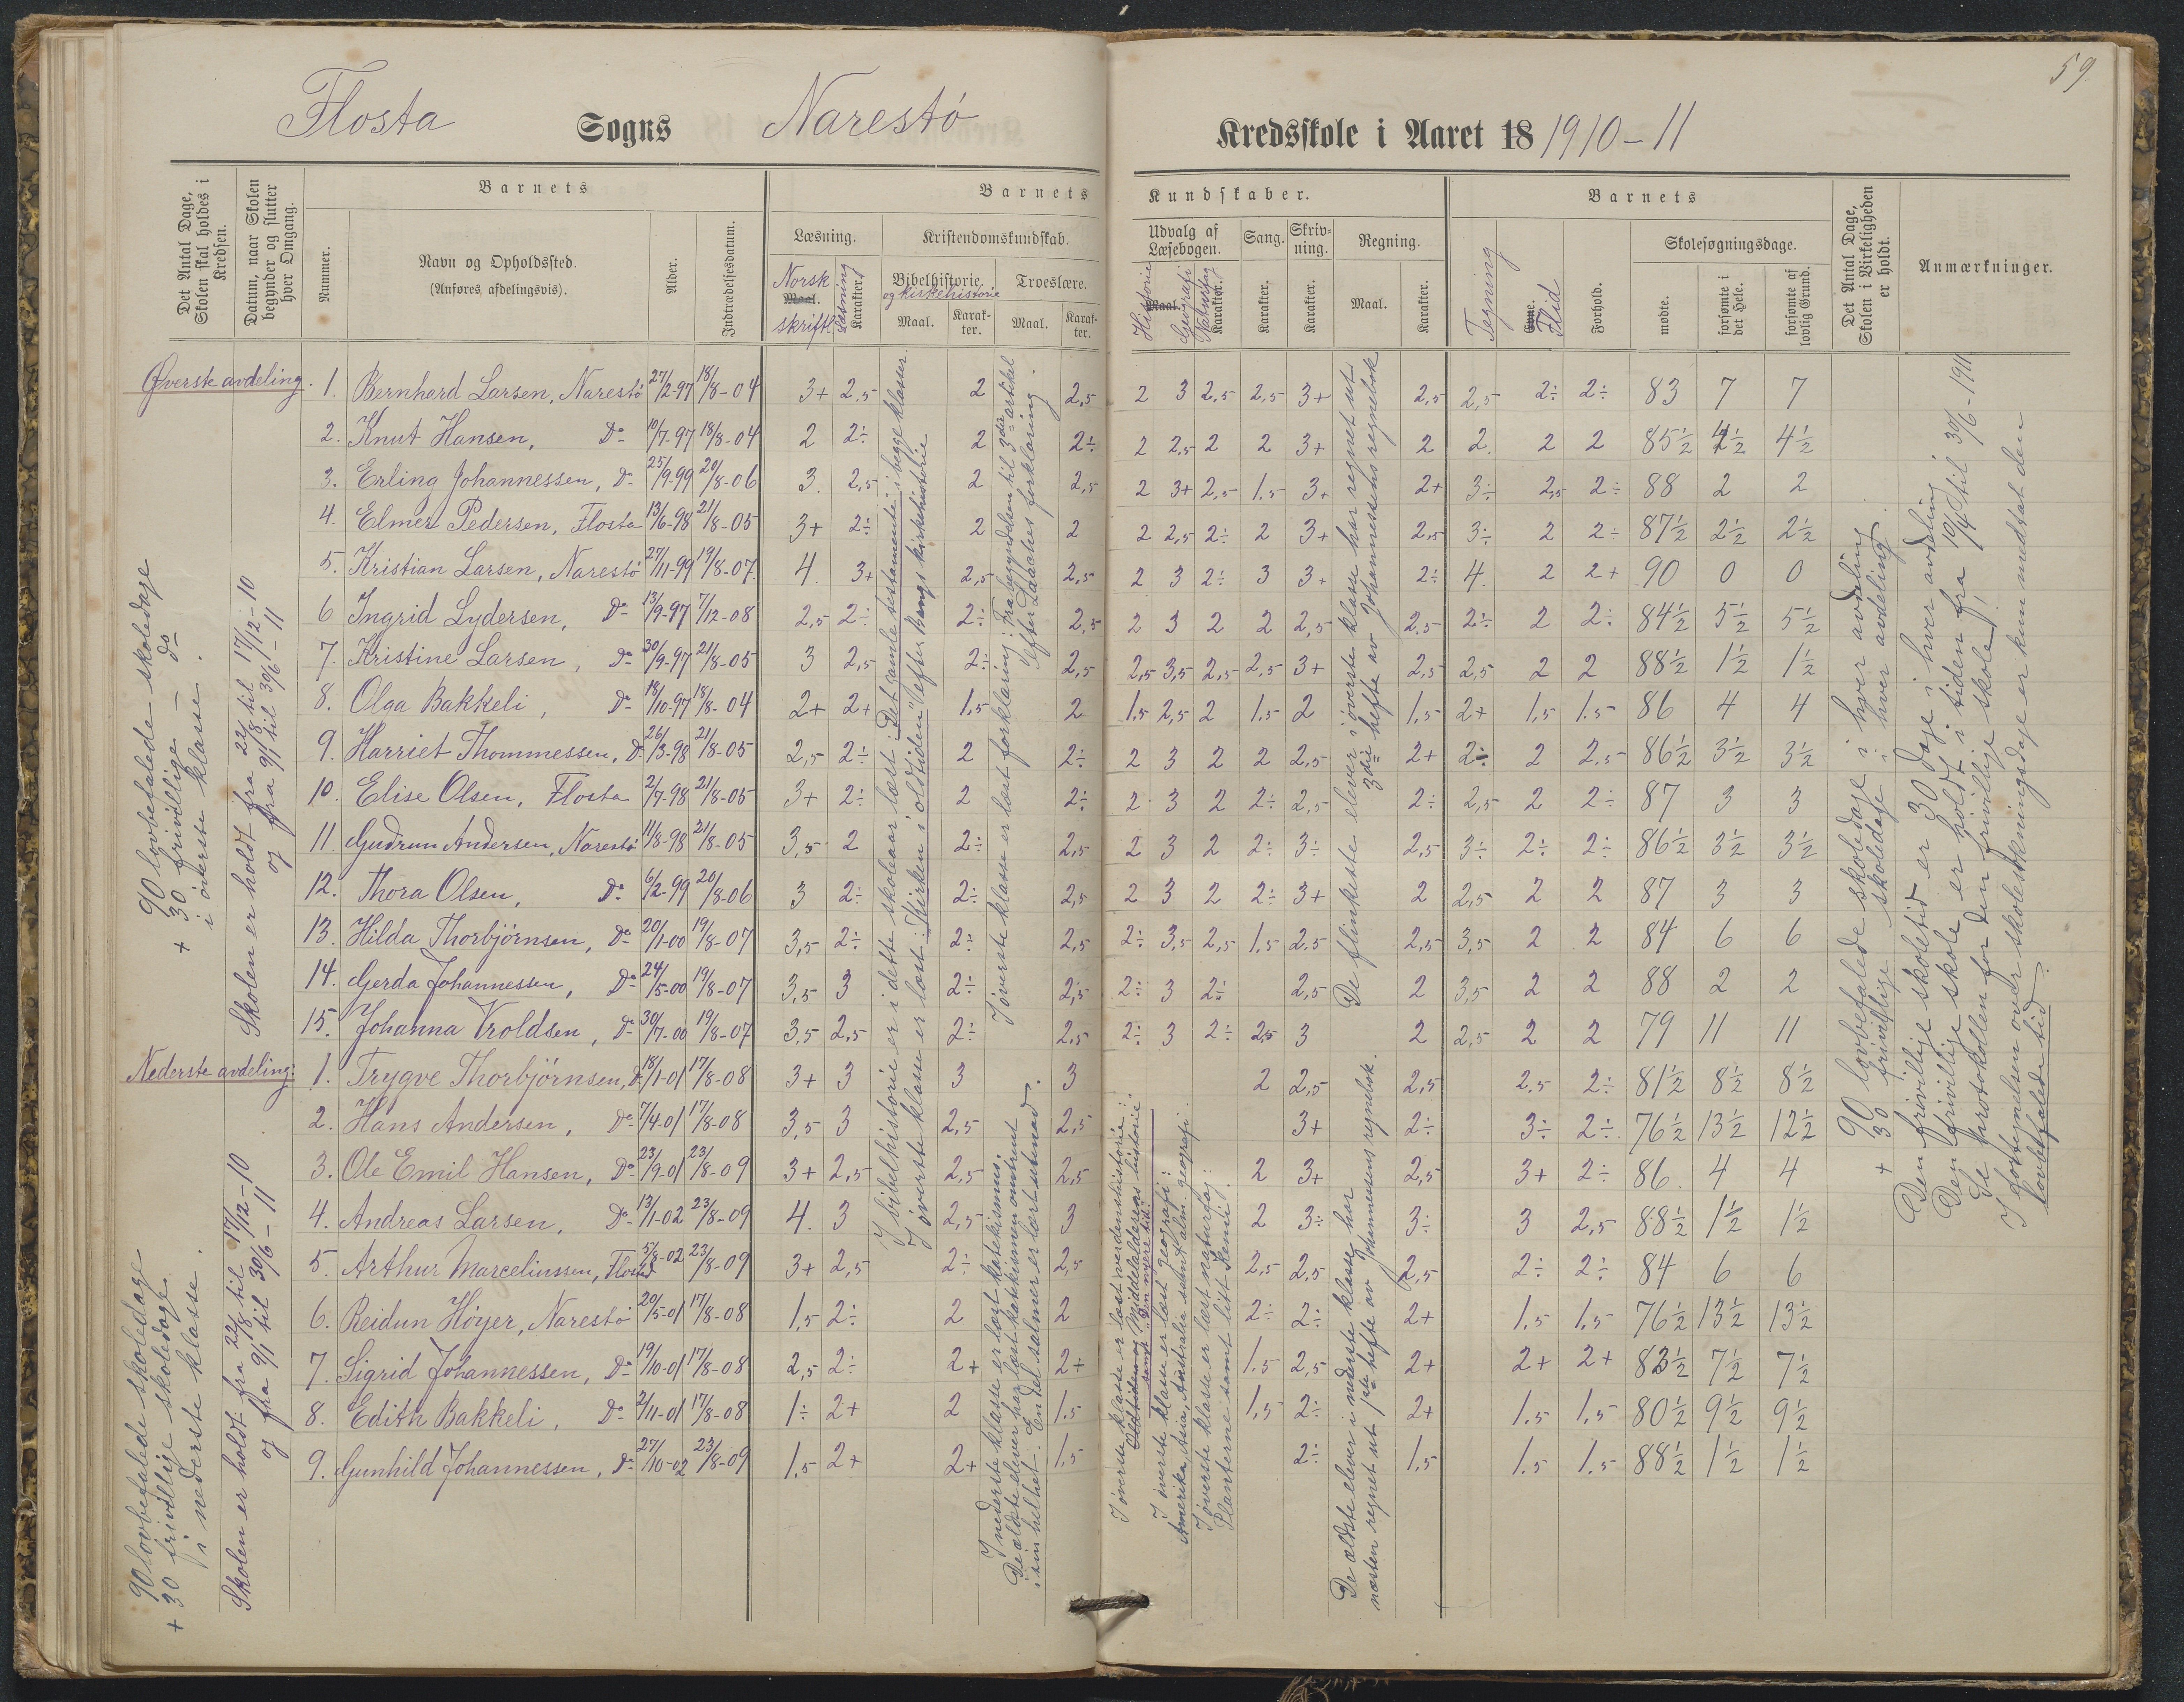 59
Flosta Sogns Narestö Kredsskole i Aaret 18 1910-11
Det Antal Dage, Skolen skal holdes i Kredsen.
Datum, naar Skolen begynder og slutter hver Omgang.
Barnets
Nummer.
Navn og Opholdssted.
(Anføres afdelingsvis).
Alder.
Indtrædelsesdatum.
Barnets Kundskaber.
Læsning.
Norsk skriftl.
Maal.
Læsning
Karakter.
Kristendomskundskab.
Bibelhistorie.
og kirkehistorie
Maal.
Karakter.
Troeslære.
Maal.
Karakter.
Udvalg af Læsebogen.
Historie
Maal.
Geografi
Naturfag
Karakter.
Sang.
Karakter.
Skrivning.
Karakter.
Regning.
Maal.
Karakter.
Barnets
Tegning
Evne.
Flid
Forhold.
Skolesøgningsdage.
mødte.
forsømte i det Hele.
forsømte af lovlig Grund.
Det Antal Dage, Skolen i Virkeligheden er holdt.
Anmærkninger.
Øverste avdeling.
1. Bernhard Larsen, Narestö 27/2-97 18/8-04 3+ 2.5 2 2,5 2 3 2,5 2,5 3+ 2,5 2,5 2÷ 2÷ 83 7 7
2. Knut Hansen, Do 10/7-97 18/8-04 2 2÷ 2 2÷ 2 2.5 2 2 3+ 2 2. 2 2 85½ 4½ 4½
3. Erling Johannessen, Do 25/9-99 20/8-06 3. 2,5 2 2,5 2 3+ 2,5 1.5 3+ 2+ 3÷ 2,5 2÷ 88 2 2
4. Elmer Pedersen, Flosta 13/6-98 21/8-05 3+ 2÷ 2 2 2 2,5 2÷ 2 3+ 2,5 3÷ 2 2÷ 87½ 2½ 2½
5. Kristian Larsen, Narestö 27/11-99 19/8-07. 4. 3+ 2,5 2,5 2 3 2÷ 3 3+ 2÷ 4. 2 2+ 90 0 0
6 Ingrid Lydersen, Do 13/9-97 7/12-08 2,5 2÷ 2÷ 2,5 2 3 2 2 2,5 2,5 2÷ 2 2÷ 84½ 5½ 5½
7. Kristine Larsen, Do 30/9-97 21/8-05 3 2,5 2÷ 2,5 2,5 3,5 2,5 2,5 3+ 2,5 2,5 2 2 88½ 1½ 1½
8. Olga Bakkeli, Do 18/10-97 18/8-04 2+ 2+ 1,5 2 1.5 2,5 2 1.5 2 1,5 2+ 1,5 1.5 86 4 4
9. Harriet Thommessen, Do 26/3-98 21/8-05 2,5 2÷ 2 2÷ 2 3 2 2 2,5 2+ 2÷ 2 2,5 86½ 3½ 3½
10. Elise Olsen, Flosta 2/7-98 21/8-05 3+ 2÷ 2 2÷ 2 3 2 2÷ 2,5 2÷ 2,5 2 2÷ 87 3 3
11. Gudrun Andersen, Narestö 11/8-98 21/8-05 3,5 2 2÷ 2,5 2 3 2 2÷ 3÷ 2,5 3÷ 2÷ 2÷ 86½ 3½ 3½
12. Thora Olsen, Do 6/2-99 20/8-06 3 2÷ 2÷ 2,5 2 3 2 2÷ 3+ 2 2,5 2 2 87 3 3
13. Hilda Thorbjörnsen, Do 20/1-00 19/8-07 3,5 2÷ 2÷ 2,5 2÷ 3,5 2,5 1.5 2.5 2,5 3,5 2 2 84 6 6
14. Gerda Johannessen, Do 24/5-00 19/8-07 3,5 3 2÷ 2,5 2÷ 3 2÷ 2,5 2 3,5 2 2 88 2 2
15. Johanna Vroldsen, Do 30/7-00 19/8-07 3,5 2,5 2÷ 2.5 2÷ 3 2÷ 2,5 3 2 2,5 2 2 79 11 11
Nederste avdeling:
1. Trygve Thorbjörnsen, Do 18/1-01 17/8-08 3+ 3 3 3 2 2,5 2,5 2.5 2÷ 81½ 8½ 8½
2. Hans Andersen, Do 7/4-01 17/8-08 3,5 3 2,5 2,5 3+ 2÷ 3÷ 2÷ 76½ 13½ 12½
3. Ole Emil Hansen, Do 23/9-01 23/8-09 3+ 2,5 2,5 2,5 2 3+ 2,5 3+ 2÷ 86 4 4
4. Andreas Larsen, Do 13/1-02 23/8-09 4. 3 2,5 3 2 3÷ 3÷ 3 2,5 88½ 1½ 1½
5. Arthur Marceliussen, Flosta 5/8-02 23/8-09 3+ 2,5 2÷ 2,5 2,5 2,5 2,5 2÷ 2÷ 84 6 6
6. Reidun Höyer, Narestö 20/5-01 17/8-08 1,5 2÷ 2 2 2÷ 2÷ 2+ 1.5 1.5 76½ 13½ 13½
7. Sigrid Johannessen, Do 19/10-01 17/8-08 2,5 2÷ 2+ 2+ 1.5 2,5 2+ 2+ 2+ 82½ 7½ 7½
8. Edith Bakkeli, Do 2/11-01 17/8-08 1÷ 2+ 2 1.5 1,5 2÷ 2+ 1.5 1,5 80½ 9½ 9½
9. Gunhild Johannessen, Do 27/10-02 23/8-09 1,5 2+ 2+ 1.5 2÷ 1,5 1.5 1.5 88½ 1½ 1½
90 lovbefalede skoledage
+ 30 frivillige — do
i överste klasse.
Skolen er holdt fra 22/8 til 17/12-10
og fra 9/1 til 30/6-11
90 lovbefalede skoledage
+ 30 frivillige skoledage
i nederste klasse.
Skolen er holdt fra 22/8 til 17/12-10
og fra 9/1 til 30/6-11
I bibelhistorie er i dette skoleaar læst: Det gamle testamente i begge klasser.
I överste klasse er læst: "Kirken i oldtiden" efter Bangs kirkehistorie
I överste klasse er læst forklaring: Fra begyndelsen til 3die artikel
efter Laaches forklaring.
I nederste klasse er læst katekismus.
De ældste elever har læst katekismen omtrent
i sin helhet. En del salmer er lært utenad.
I överste klasse er læst verdenshistorie:
Oldtiden og Middelalderens historie
samt den nyere tid.
I överste klasse er læst geografi:
Amerika, Asia, Australia samt alm. geografi.
I överste klasse er læst naturfag:
Planterne samt litt kemi.
De flinkeste elever i överste klasse har regnet ut
3die hefte av Johannessens regnebok
De ældste elever i nederste klasse har
næsten regnet ut 1ste hefte av Johannessens regnebok.
90 lovbefalede skoledage i hver avdeling
+ 30 frivillige skoledage i hver avdeling.
Den frivillige skoletid er 30 dage i hver avdeling.
Den frivillige skole er holdt i tiden fra 10/4 til 30/6-1911
Se protokollen for den frivillige skole,
I fortegnelsen over skolesökningsdage er kun medtat den
lovbefalede tid.